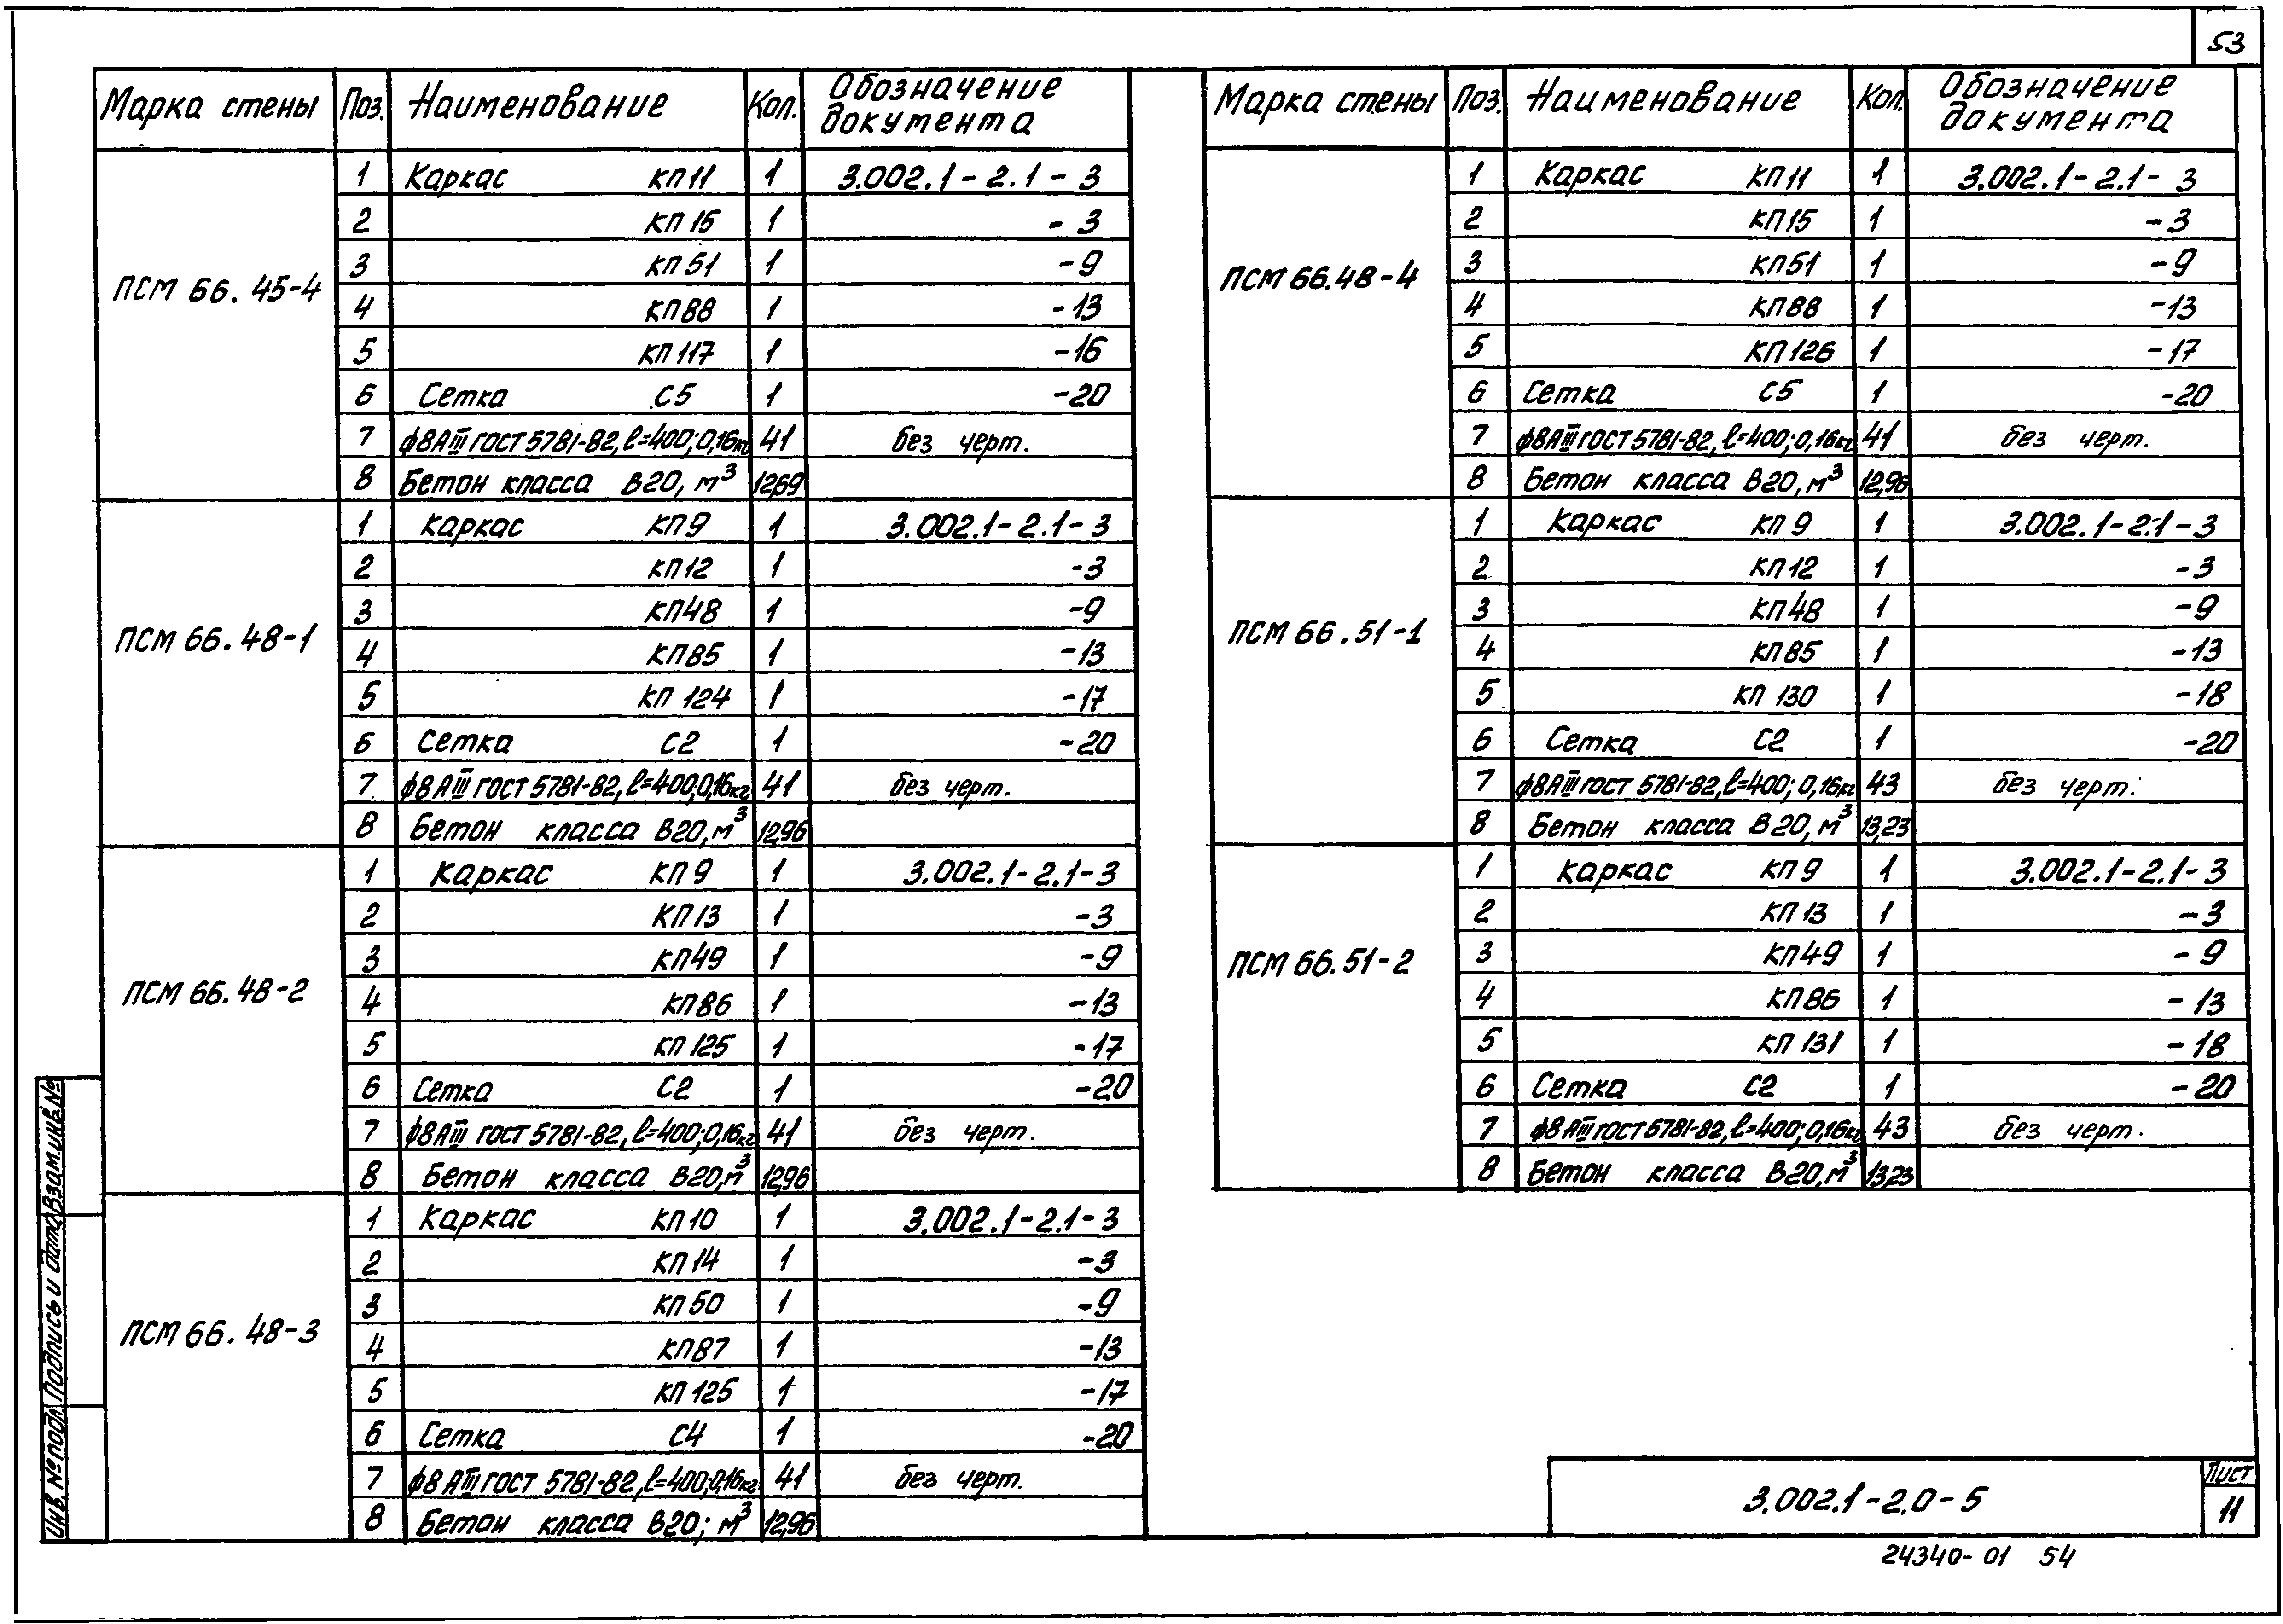 53
Марка стены Поз. Наименование Кол. Обозначение документа
ПСМ 66.45-4
1 Каркас КП11 1 3.002.1-2.1-3
2 КП15 1 -3
3 КП51 1 -9
4 КП88 1 -13
5 КП117 1 -16
6 Сетка С5 1 -20
7 ф8АIII ГОСТ 5781-82, l=400; 0,16кг 41 без черт.
8 Бетон класса В20, м³ 12,69
ПСМ 66.48-1
1 Каркас КП9 1 3.002.1-2.1-3
2 КП12 1 -3
3 КП48 1 -9
4 КП85 1 -13
5 КП124 1 -17
6 Сетка С2 1 -20
7 ф8АIII ГОСТ 5781-82, l=400; 0,16кг 41 без черт.
8 Бетон класса В20, м³ 12,96
ПСМ 66.48-2
1 Каркас КП9 1 3.002.1-2.1-3
2 КП13 1 -3
3 КП49 1 -9
4 КП86 1 -13
5 КП125 1 -17
6 Сетка С2 1 -20
7 ф8АIII ГОСТ 5781-82, l=400; 0,16кг 41 без черт.
8 Бетон класса В20, м³ 12,96
ПСМ 66.48-3
1 Каркас КП10 1 3.002.1-2.1-3
2 КП14 1 -3
3 КП50 1 -9
4 КП87 1 -13
5 КП125 1 -17
6 Сетка С4 1 -20
7 ф8АIII ГОСТ 5781-82, l=400; 0,16кг 41 без черт.
8 Бетон класса В20; м³ 12,96
Марка стены Поз. Наименование Кол. Обозначение документа
ПСМ 66.48-4
1 Каркас КП11 1 3.002.1-2.1-3
2 КП15 1 -3
3 КП51 1 -9
4 КП88 1 -13
5 КП126 1 -17
6 Сетка С5 1 -20
7 ф8АIII ГОСТ 5781-82, l=400; 0,16кг 41 без черт.
8 Бетон класса В20, м³ 12,96
ПСМ 66.51-1
1 Каркас КП9 1 3.002.1-2.1-3
2 КП12 1 -3
3 КП48 1 -9
4 КП85 1 -13
5 КП130 1 -18
6 Сетка С2 1 -20
7 ф8АIII ГОСТ 5781-82, l=400; 0,16кг 43 без черт.
8 Бетон класса В20, м³ 13,23
ПСМ 66.51-2
1 Каркас КП9 1 3.002.1-2.1-3
2 КП13 1 -3
3 КП49 1 -9
4 КП86 1 -13
5 КП131 1 -18
6 Сетка С2 1 -20
7 ф8АIII ГОСТ 5781-82, l=400; 0,16кг 43 без черт.
8 Бетон класса В20, м³ 13,23
Инв. № подл. Подпись и дата Взам. инв. №
3.002.1-2.0-5
Лист
11
24340-01 54